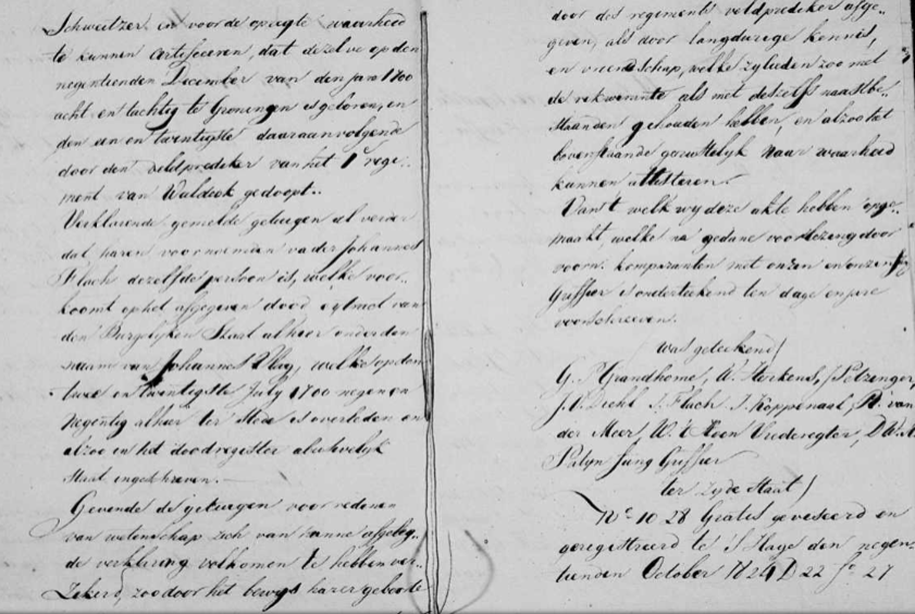 Schweitzer, en voor de opregte waarheid
te kunnen certificeeren, dat dezelve op den
negentienden December van den jare 1700
acht en tachtig te Groningen is geboren, en
den een en twintigste daaraanvolgende
door den veldprediker van het 1e rege..
ment van Waldek gedoopt..
Verklarende gemelde getuigen al verder
dat haren voornoemden vader Johannes
Flach dezelfde persoon is, welke voor..
komt op het afgegeven dood van
den Burgelijken Staat alhier onder den
naam van Johannes Vlag, welke op den
twee en twintigste July 1700 negen en
Negentig alhier ter Stede is overleden en
alzoo in het doodregister abusivelijk
Staat ingeschreven.
Gevende de getuigen voor redenen
van wetenschap zich van hunne afgeleg..
de verklaring volkomen te hebben ver..
zekerd, zoo door het bewys harer geboorte
door des regiments veldprediker afge..
geven, als door langdurige kennis,
en vriendschap, welke zy lieden zoo met
de rekwirente als met deszelfs naastbe..
staanden gehouden hebben, en alzoo het
bovenstaande gerustelyk naar waarheid
kunnen attesteren.
Van 't welk wy deze akte hebben opge..
maakt, welke na gedane voorlezing door
voorn. komparanten met onzen en onzen
Griffier is onderteekend ten dage en jare
voorschreeven.
was geteekend)
G. Grandhome, A. Sterkens, J Petzenger,
J. C. Diehl J. Flach J. Koppenaal, van
der Meer, W. 't Hoen Vrederegter, D
Jung Griffier
ter zyde Staat)
No 10 28 Gratis geviseerd en
geregistreerd te 'S Hage den negen
tienden October 1824 D 22 fo 27